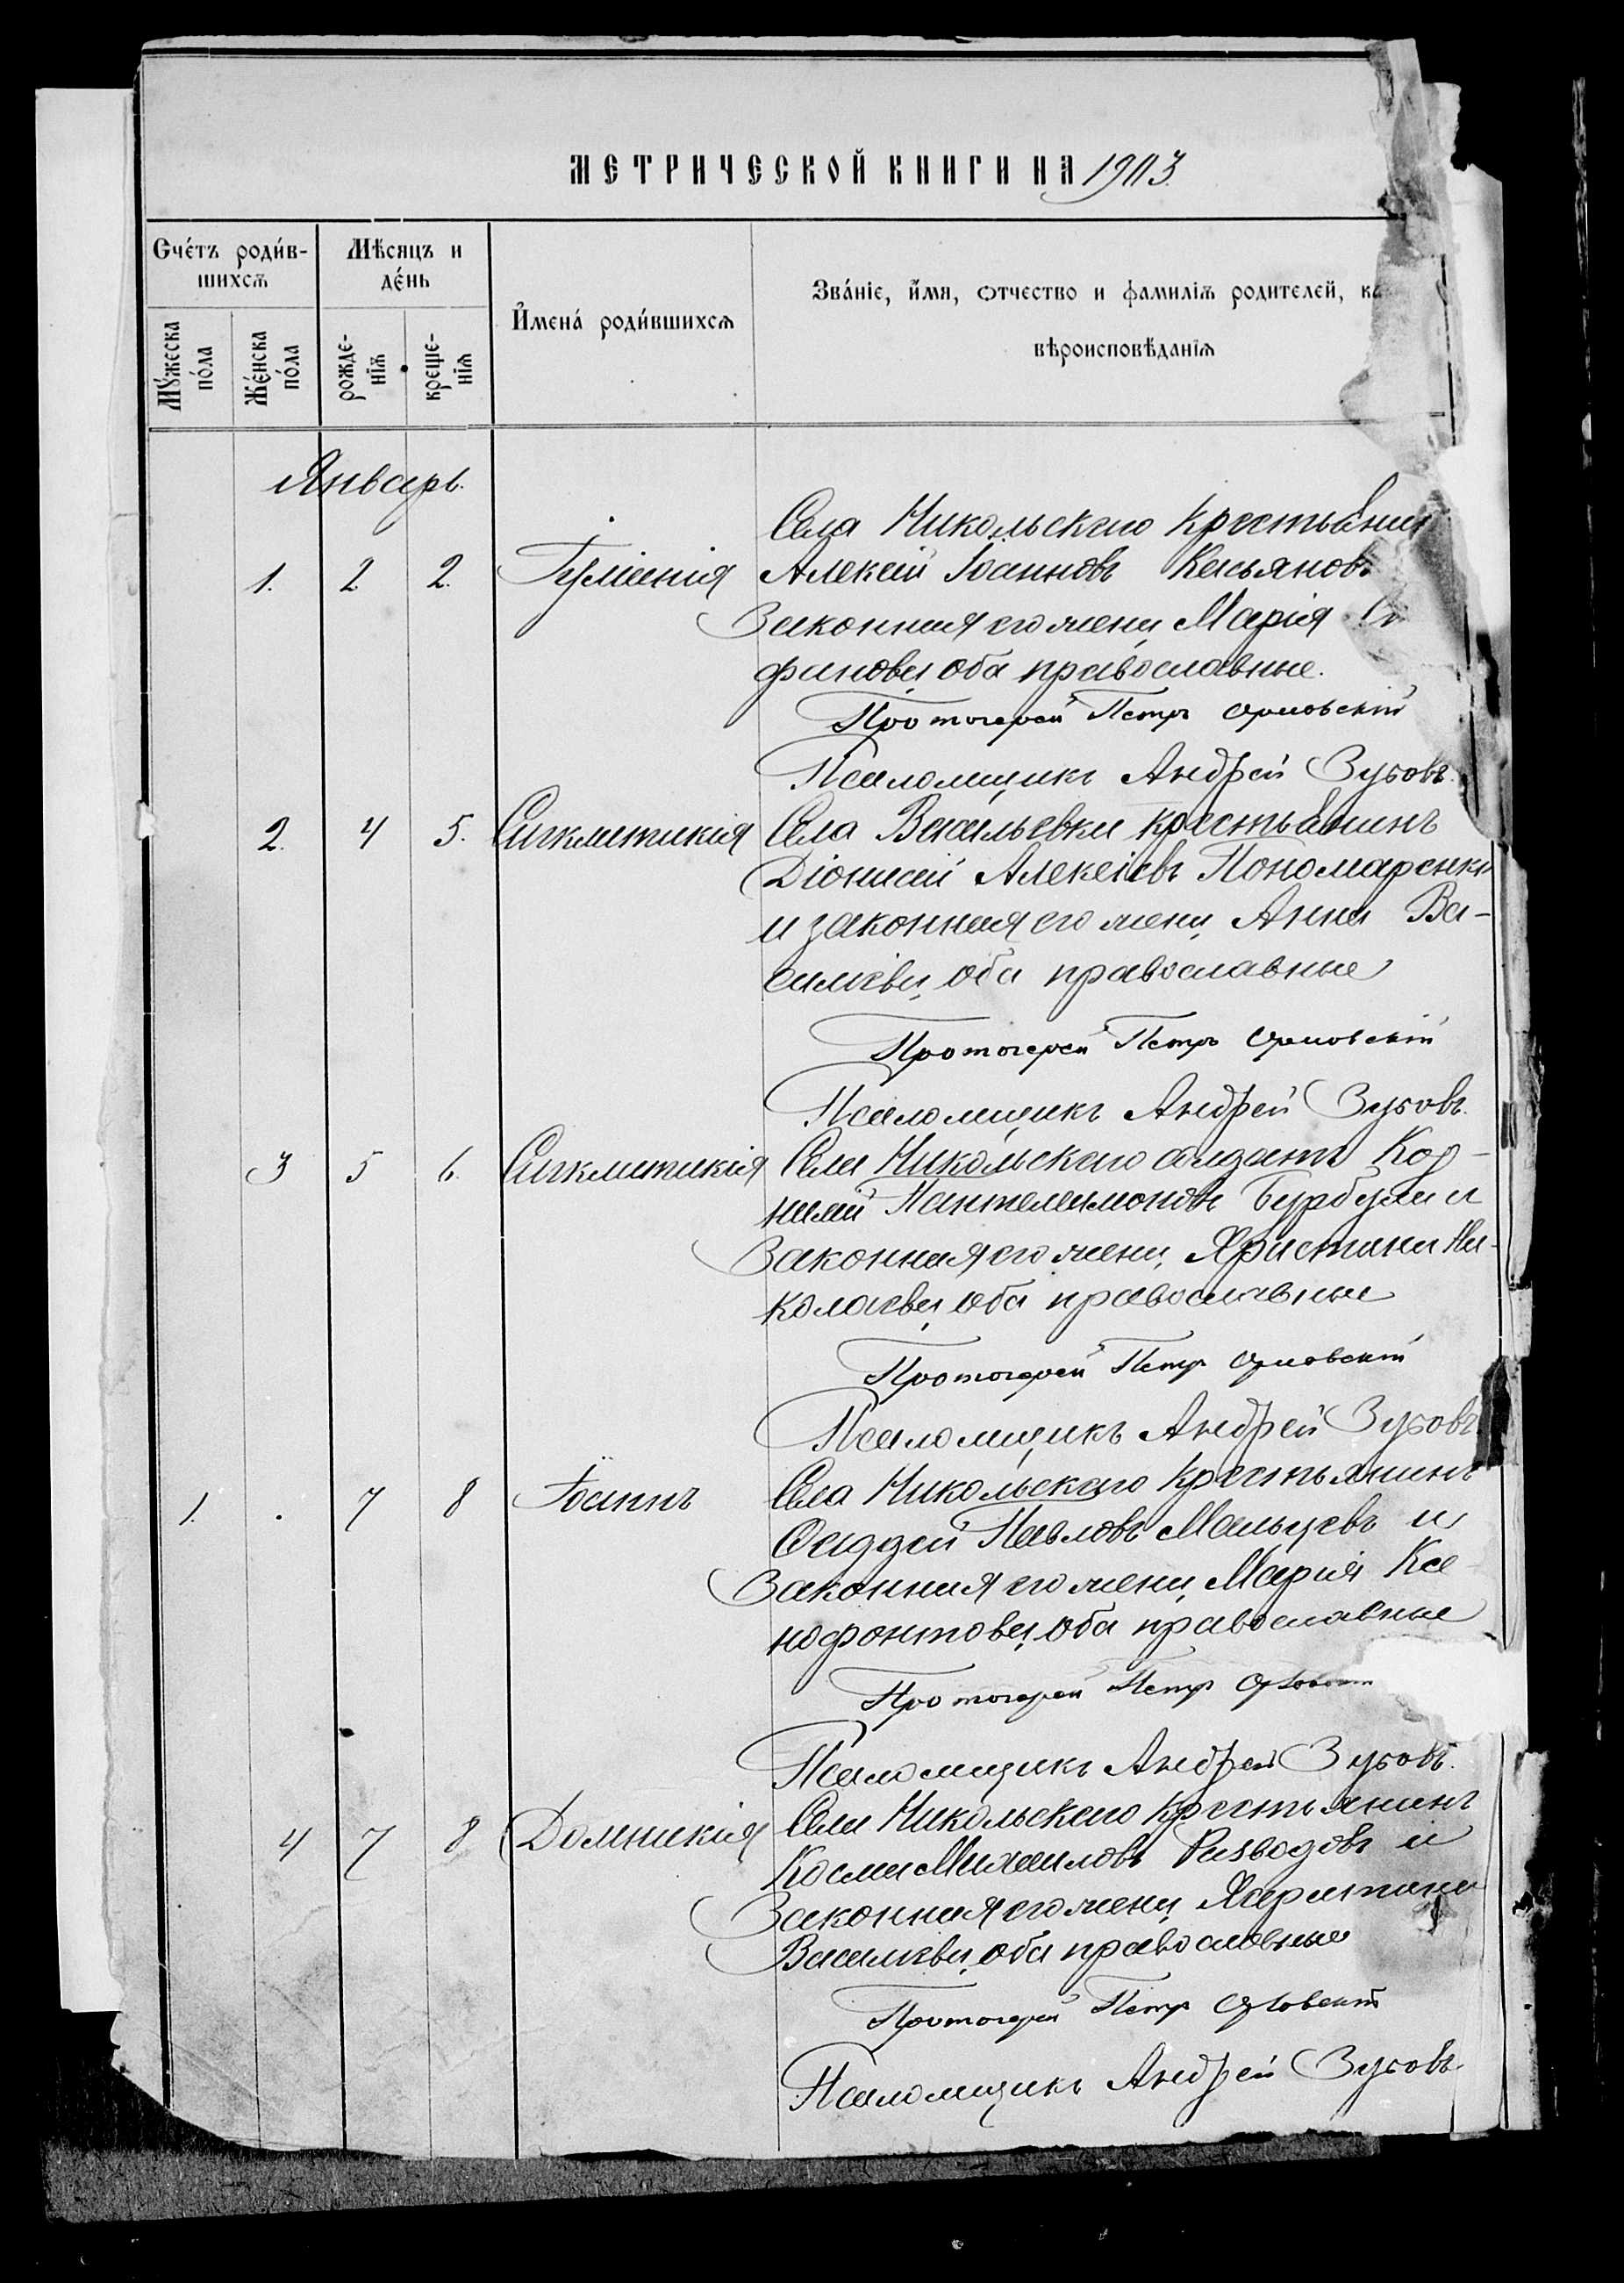 МЕТРИЧЕСКОЙ КНИГИ НА 1903.
Счетъ родив-
шихся
Мужеска пола
Женска пола
Мѣсяцъ и
день
рожде-
нія
креще-
нія
Имена родившихся
Званіе, имя, отчество и фамилія родителей,
вѣроисповѣданія
Январь.
Села Никольскаго крестьянин
1. 2. 2. Іуліанія Алексій Іоанновъ Касьяновъ
Законная его жена Марія
фанова, оба православные.
Протоіерей Петръ Орловскій
Псаломщикъ Андрей Зубовъ.
2. 4 5. Сигклитикія Села Васильевки крестьянинъ
Діонисій Алексіевъ Пономаренко
и законная его жена Анна Ва-
силіева, оба православные
Протоіерей Петръ Орловскій
Псаломщикъ Андрей Зубовъ.
3 5 6. Сигклитикія Села Никольскаго солдатъ Кор-
нилій Пантелеимоновъ Бурбула и
Законная его жена Христина Ни-
колаева, оба православные
Протоіерей Петръ Орловскій
Псаломщикъ Андрей Зубовъ.
1. . 7 8 Іоаннъ Села Никольскаго крестьянинъ
Фаддей Павловъ Мальцевъ и
Законная его жена Марія Ксе-
нофонтова, оба православные
Протоіерей Петръ
Псаломщикъ Андрей Зубовъ.
4 7 8 Домникія Села Никольскаго крестьянинъ
Косма Михаиловъ Разводовъ и
Законная его жена Харитина
Василіева, оба православные
Протоіерей Петръ Орловскій
Псаломщикъ Андрей Зубовъ.